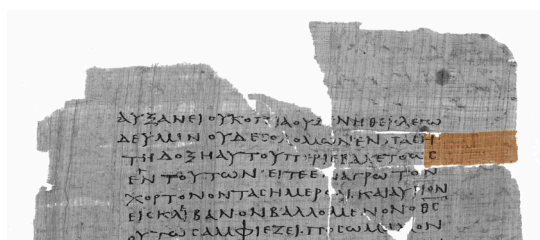 ΑΥΞΑΝΕΙ ΟΥΚΟΠΙΑΟΥΔΕ ΝΗΘΕΙΛΕΓΩ
ΔΕΥΜΙΝ ΟΥΔΕϹΟΛΟΜΩΝΕΝΠΑϹΗ
ΤΗΔΟΞΗΑΥΤΟΥΠΕΡΙΕΒΑΛΕΤΟΩϹ
ΕΝΤΟΥΤΩΝ ΕΙΔΕΕΝΑΓΡΩΤΟΝ
ΧΟΡΤΟΝΟΝΤΑϹΗΜΕΡΟΝΚΑΙΑΥΡΙΟΝ
ΕΙϹΚΛΙΒΑΝΟΝΒΑΛΛΟΜΕΝΟΝΟΘϹ
ΟΥΤΩϹΑΜΦΙΕΖΕΙ